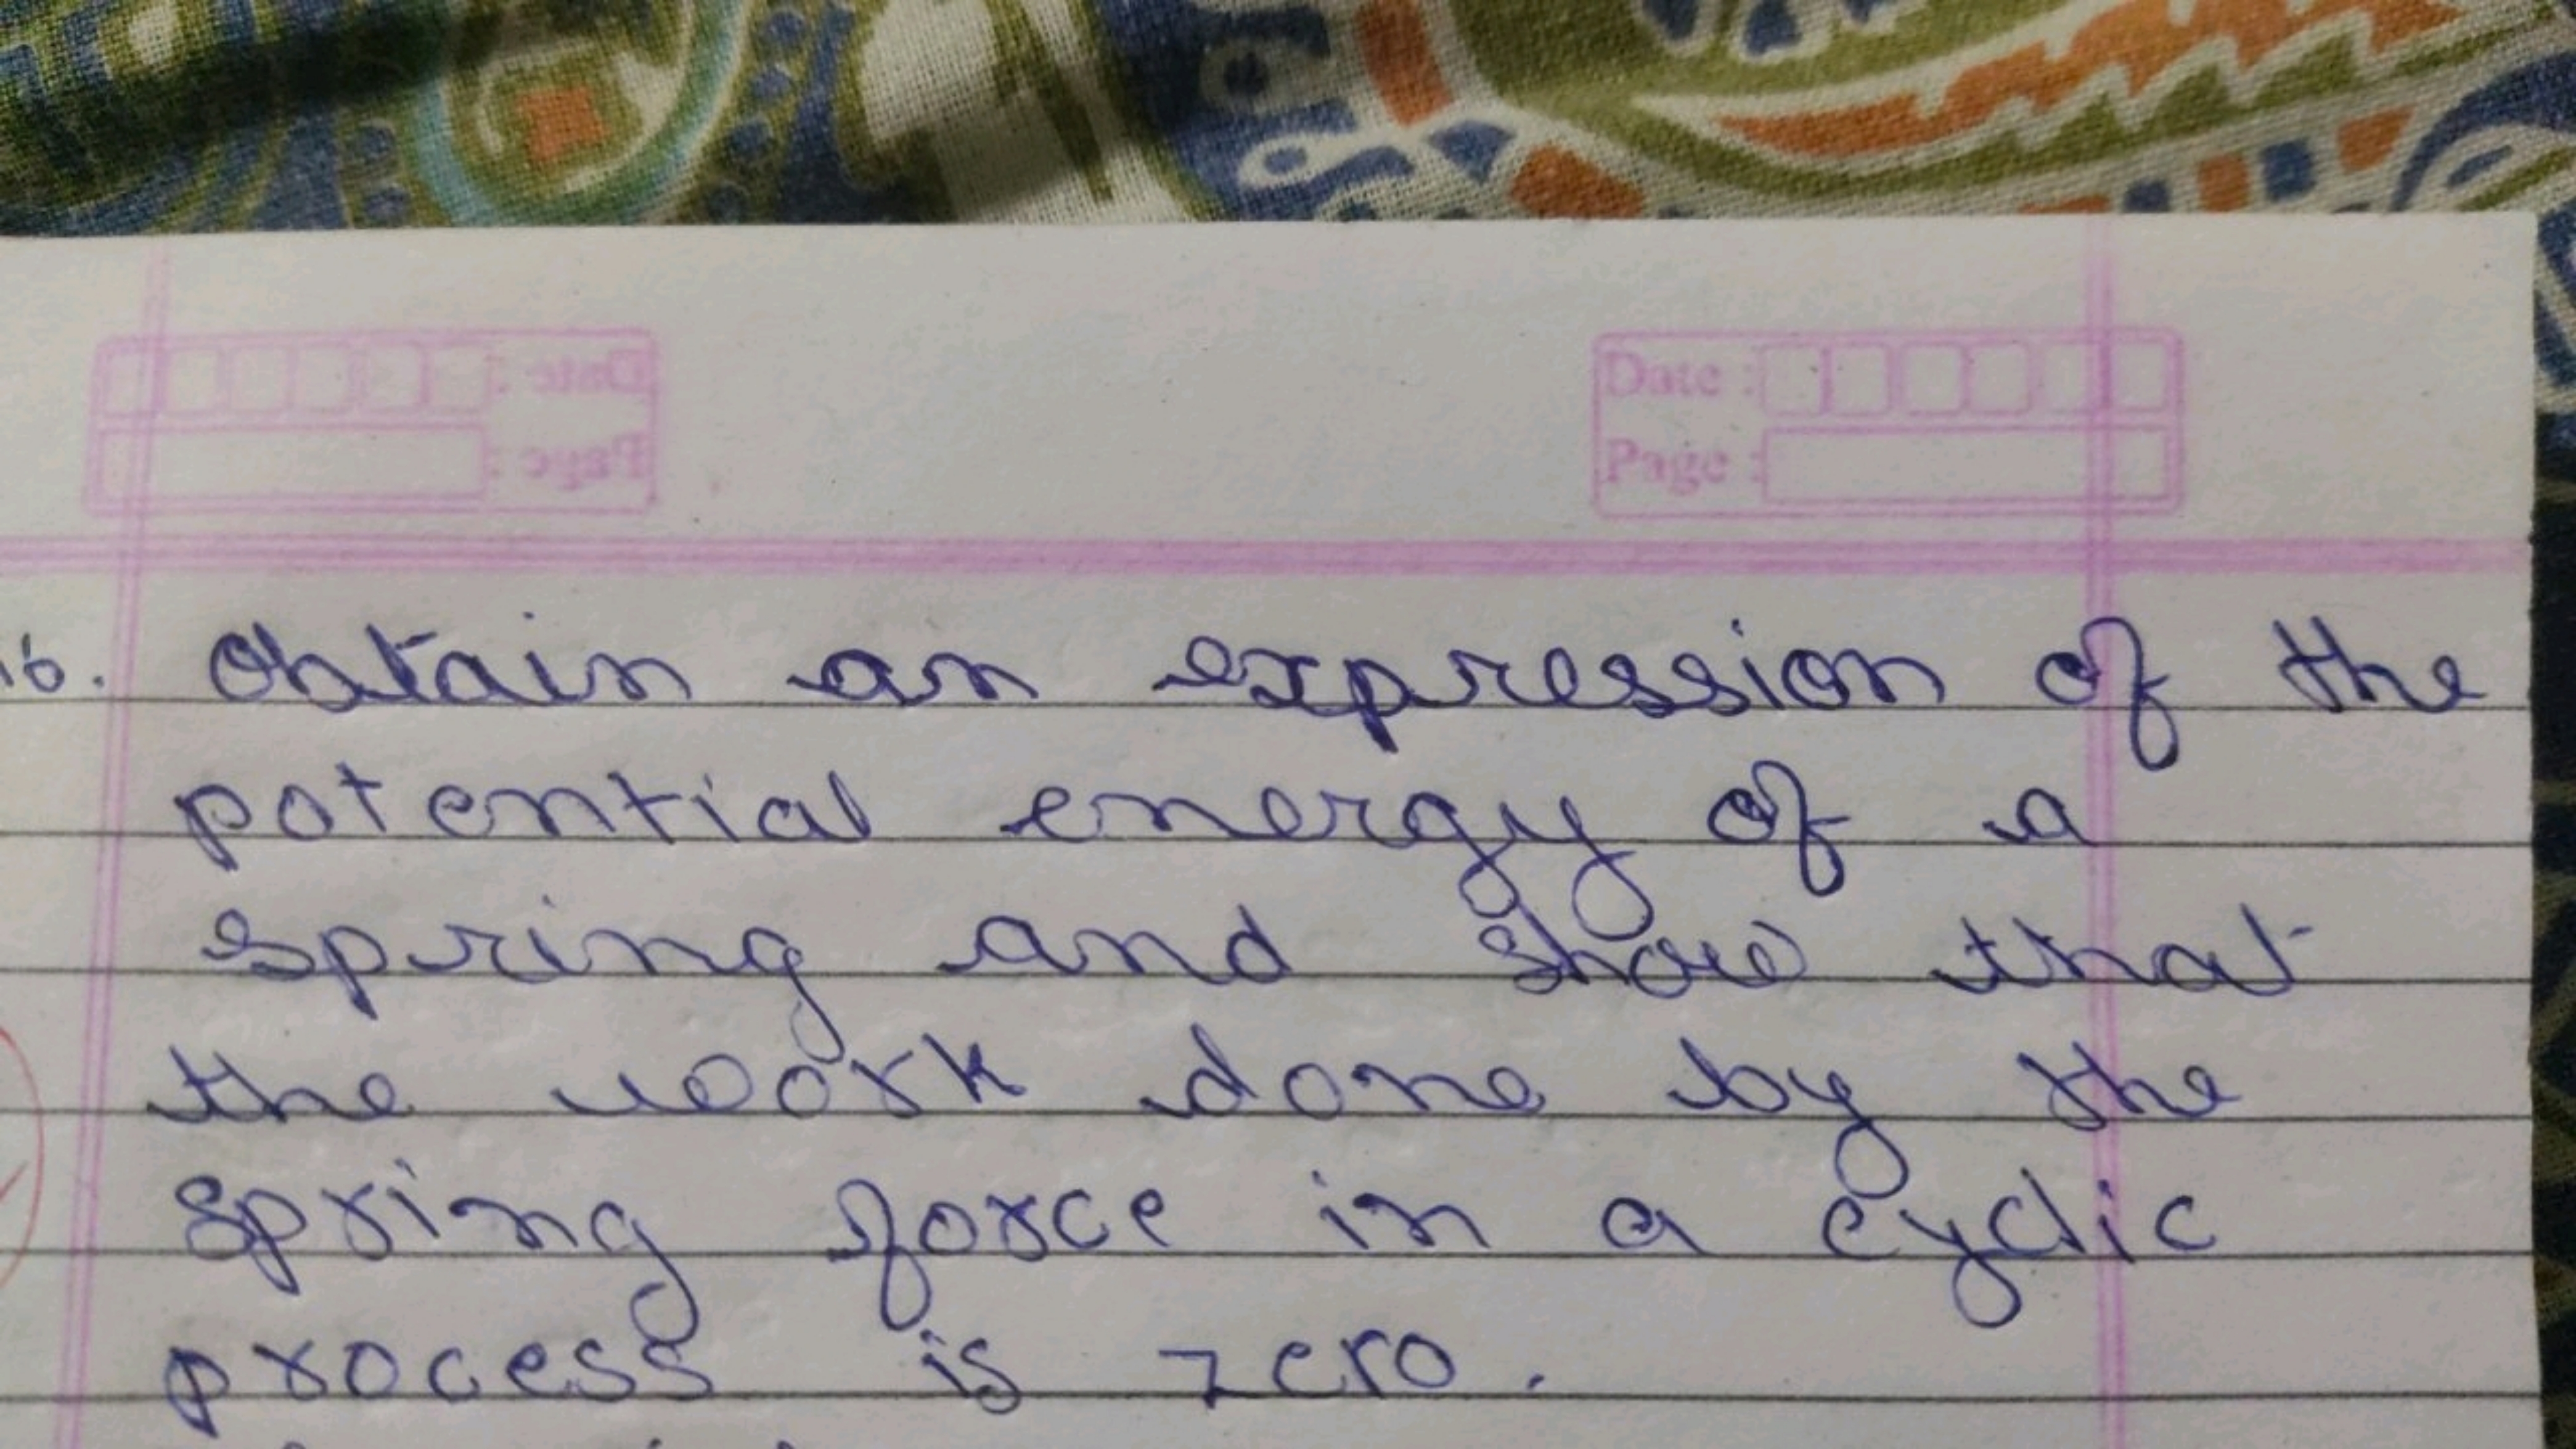 Date :
Page :
16. Obtain an expression of the
potential energy of a
spring and show that
the work done by the
spring force in a cyclic
process is zero.